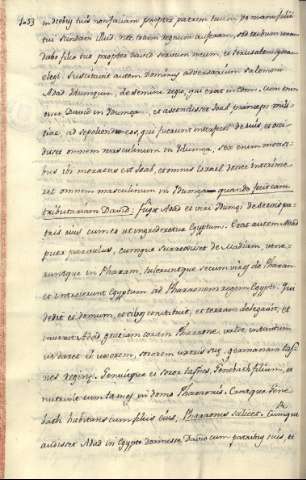 1053
in diebus tuis non faciam propter patrem tuum, de manu filii
tui scindam illud, nec totum regnum auferam, sed tribum unam
dabo filio tuo propter David servum meum, et Jerusalem quam
elegi. Suscitavit autem Dominus adversarium Salomoni
Adad Idumæum, de semine regio, qui erat in Edom. Cum enim
esset David in Idumæa, et ascendisset Joab princeps mili-
tiæ, ad sepeliendum eos, qui fuerant interfecti, et occi-
disset omnem masculinum in Idumæa, sex enim mensi-
bus ibi moratus est Joab, et omnis Israel donec interime-
ret omnem masculinum in Idumæa quando
tributariam David. fugit Adad et viri Idumæi de servis pa-
tris sui cum eo ut ingrederetur Egyptum. Erat autem Adad
puer parvulus, cumque surrexissent de Madian, vene-
runtque in Pharan, tuleruntque secum viros de Pharan
et introierunt Egyptum ad Pharaonem regem Egypti. Qui
dedit ei domum, et cibos constituit, et terram delegavit, et
invenit Adad gratiam coram Pharaone valde, intantum
ut daret ei uxorem, sororem uxoris suæ germanam Taph-
nes reginæ. Genuitque ei soror Taphnes, Genebath filium, et
nutrivit eum Taphnes in domo Pharaonis. Eratque Gene-
bath habitans cum filiis ejus, Pharaonis scilicet. Cumque
audisset Adad in Egypto dormisse David cum patribus suis, et